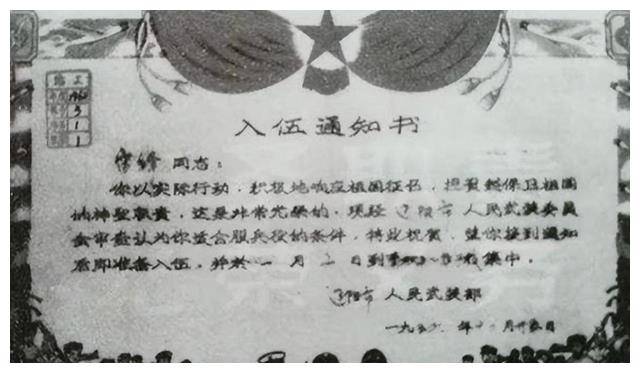 入伍通知书
雷锋 同志：
你以实际行动，积极地响应祖国征召，担负起保卫祖国
的神圣职责，这是非常光荣的，现经 辽阳市 人民武装委员
会审查认为你适合服兵役的条件，特此祝贺，望你接到通知
后即准备入伍，并於 一 月 二 日到 集中。
辽阳市 人民武装部
一九五 年十 月 日